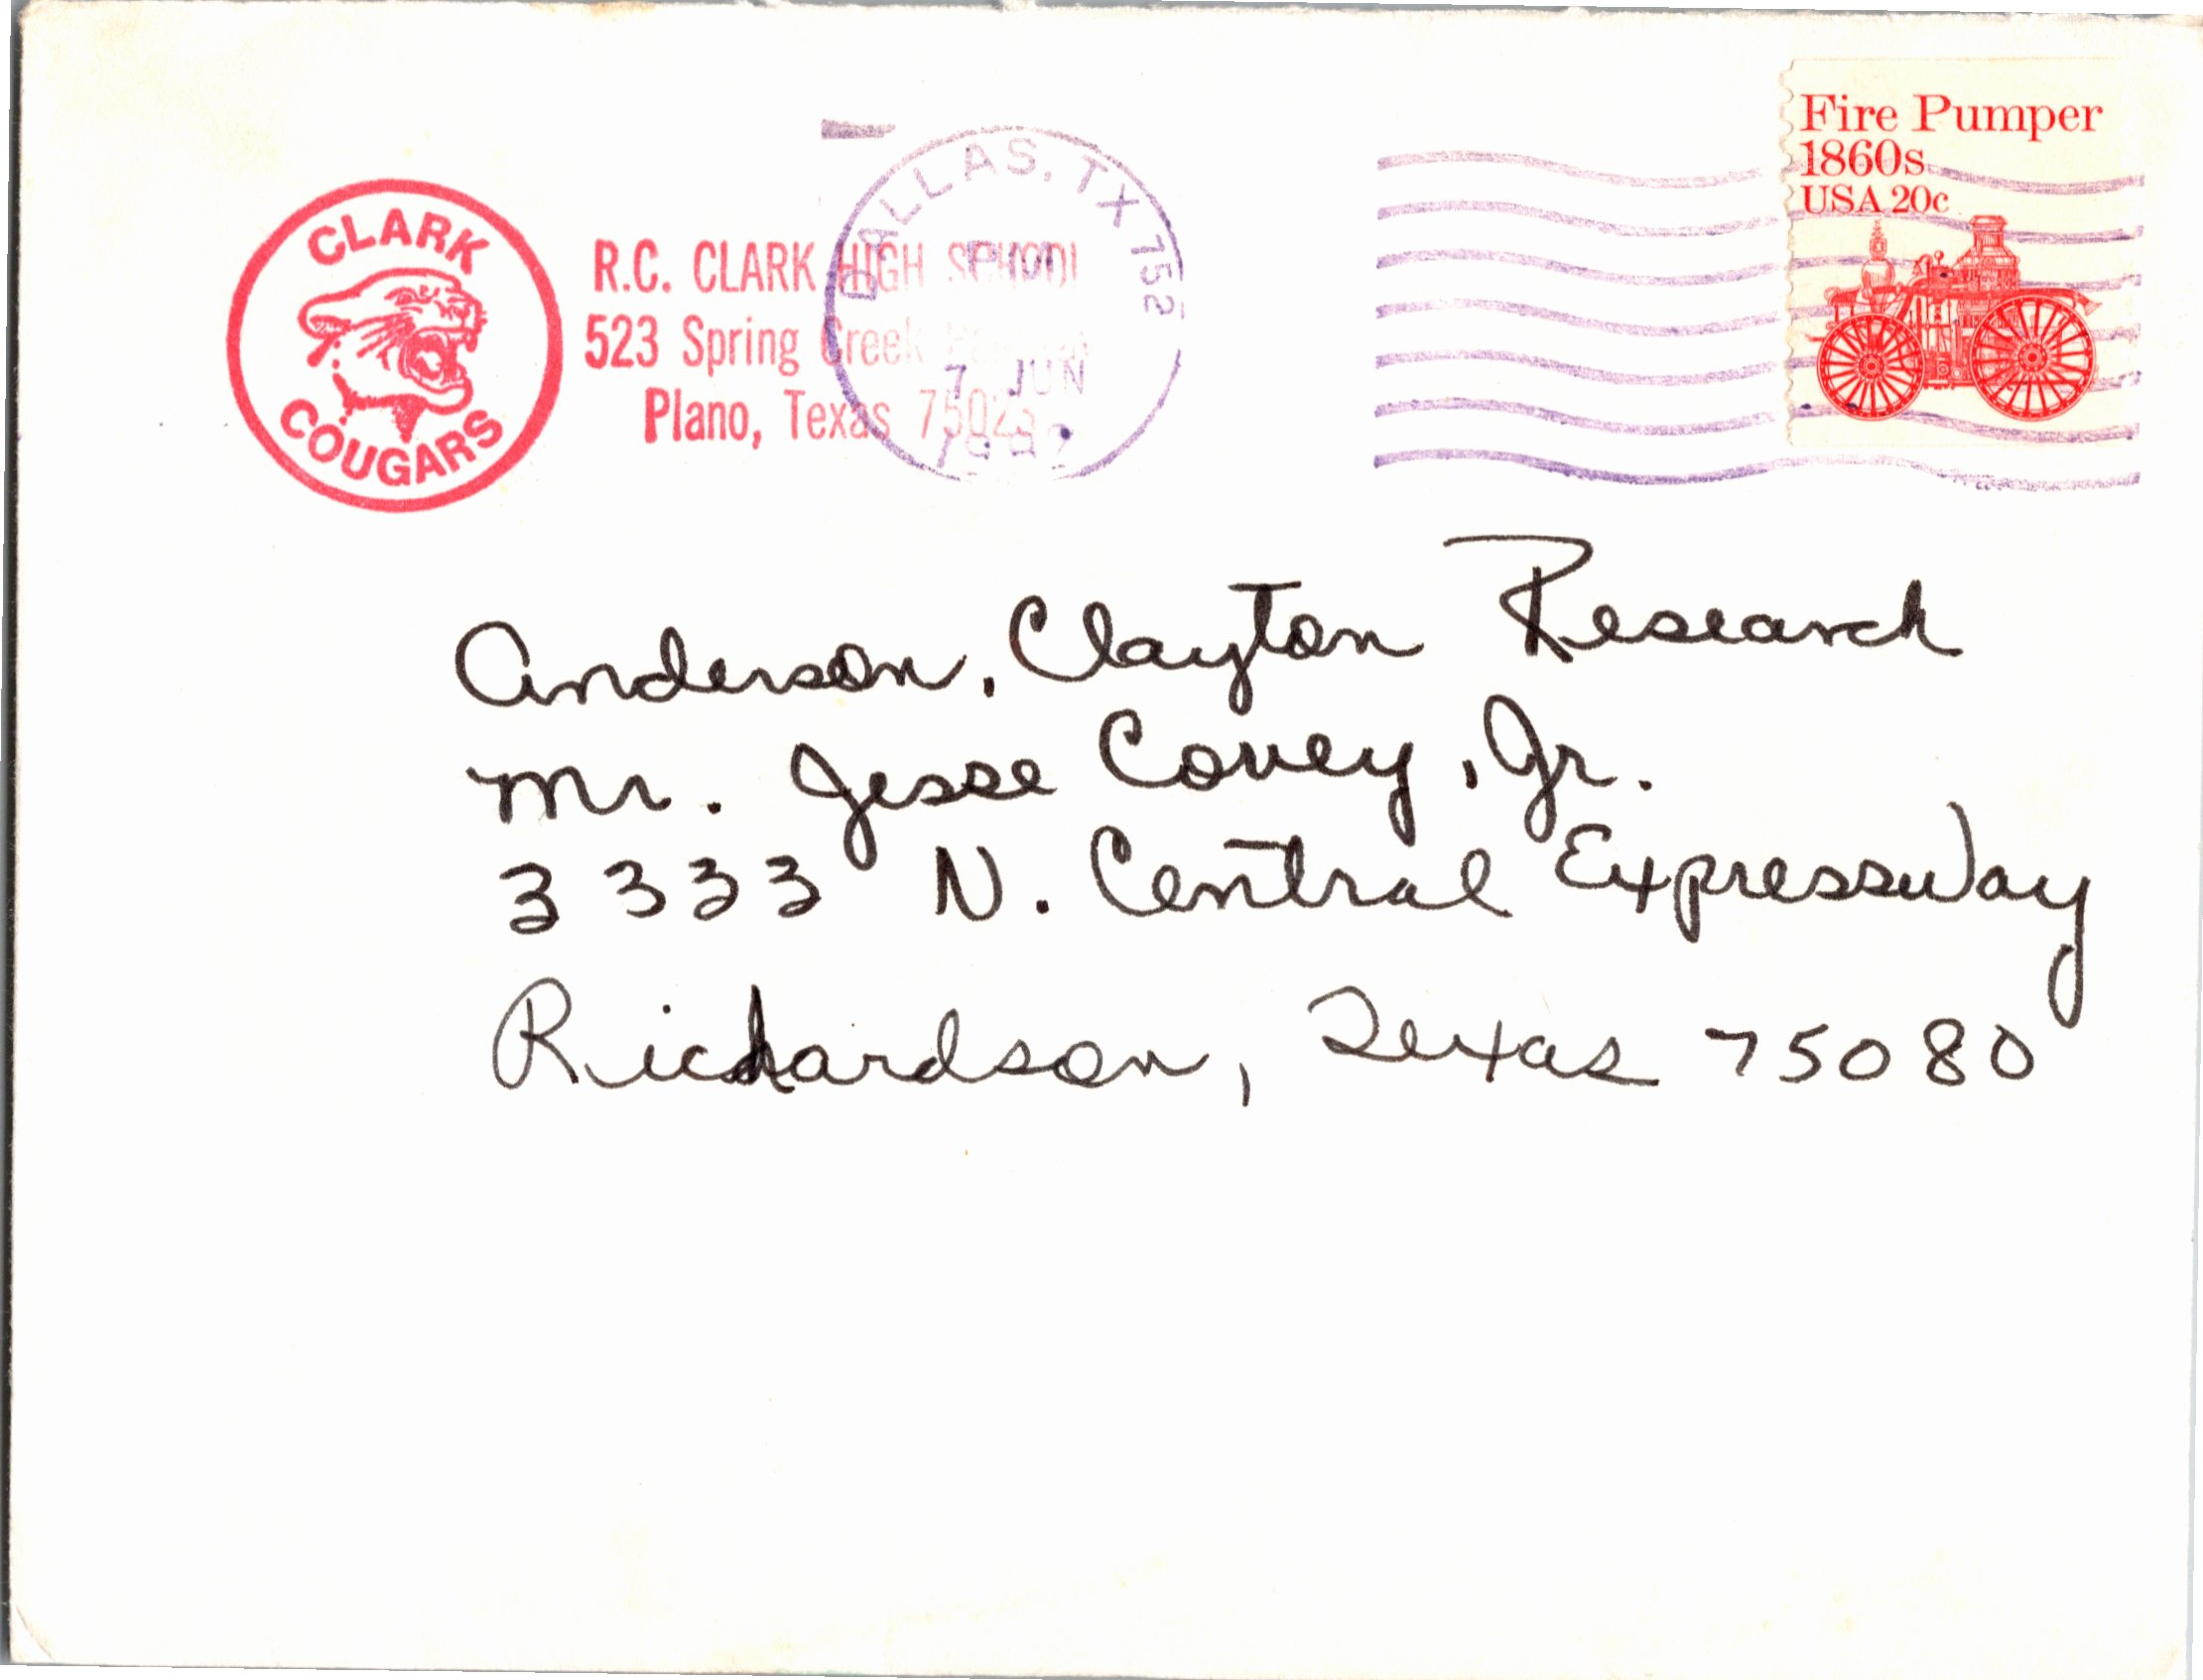 CLARK
COUGARS
R.C. CLARK HIGH SCHOOL
523 Spring Creek
Plano, Texas
DALLAS, TX 752
PM
7 JUN
Fire Pumper
1860s
USA 20c
Anderson, Clayton Research
Mr. Jesse Covey, Jr.
3333 N. Central Expressway
Richardson, Texas 75080